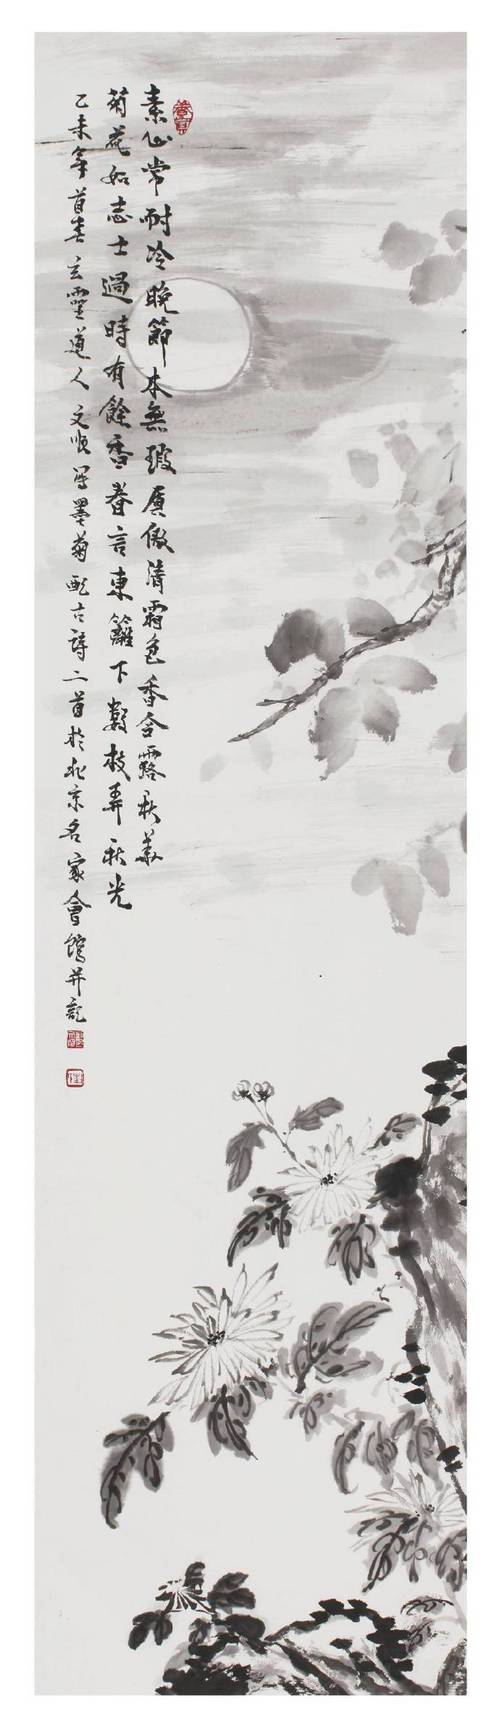 素心常耐冷晚節本無瑕質傲清霜色香含露秋華
菊花如志士過時有餘香眷言東籬下數枝弄秋光
乙未年首春玄靈道人文順寫墨菊配古詩二首於北京名家會館并記